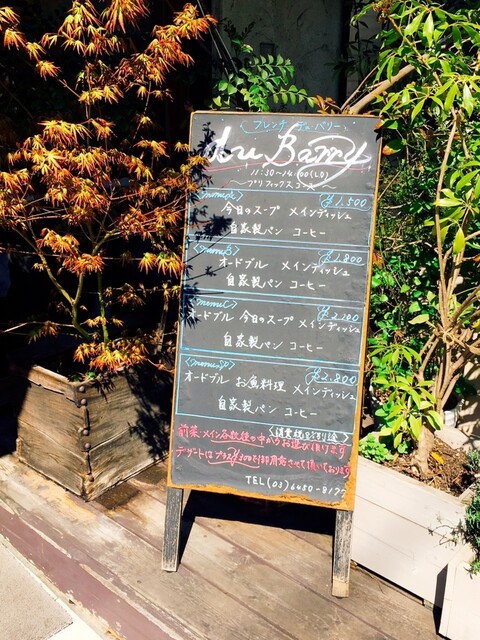 フレンチ デュ・バリー
du Barry
11:30〜14:00(LO)
〜プリフィックスコース〜
<menu A> ¥1.500
今日のスープ メインディッシュ
自家製パン コーヒー
<menu B> ¥1.800
オードブル メインディッシュ
自家製パン コーヒー
<menu C> ¥2.200
オードブル 今日のスープ メインディッシュ
自家製パン コーヒー
<menu D> ¥2.800
オードブル お魚料理 メインディッシュ
自家製パン コーヒー
<消費税は別途>
前菜・メイン各数種の中からお選び頂けます
デザートはプラス¥300で御用意させて頂いております
TEL(03)6450-8177